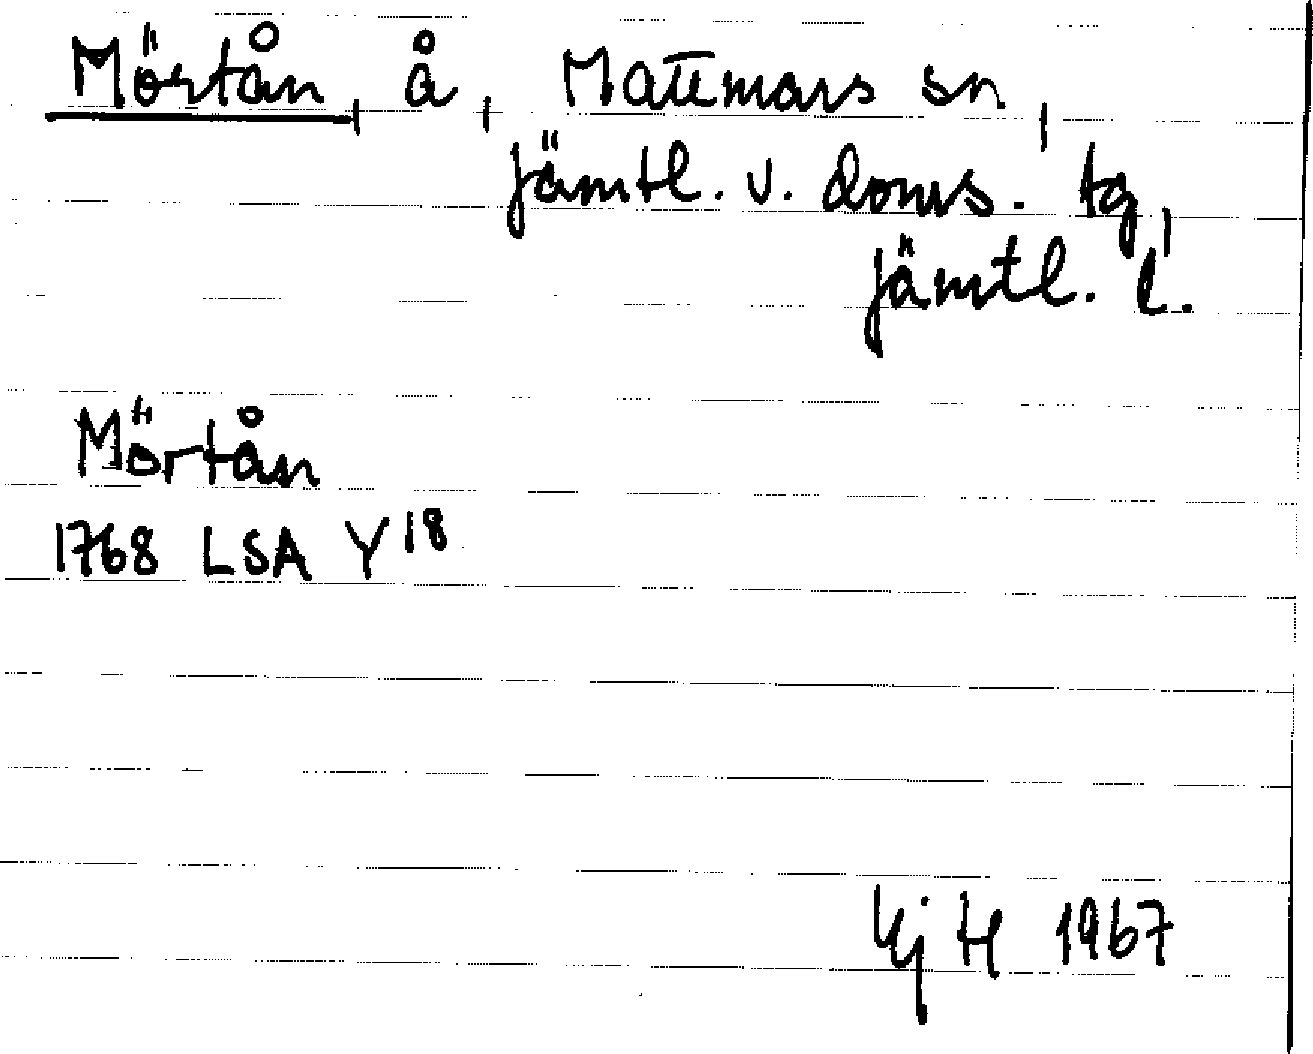 Mörtån, å, Mattmars sn,
Jämtl. v. doms. tg,
Jämtl. l.
Mörtån
1768 LSA Y 18
H 1967